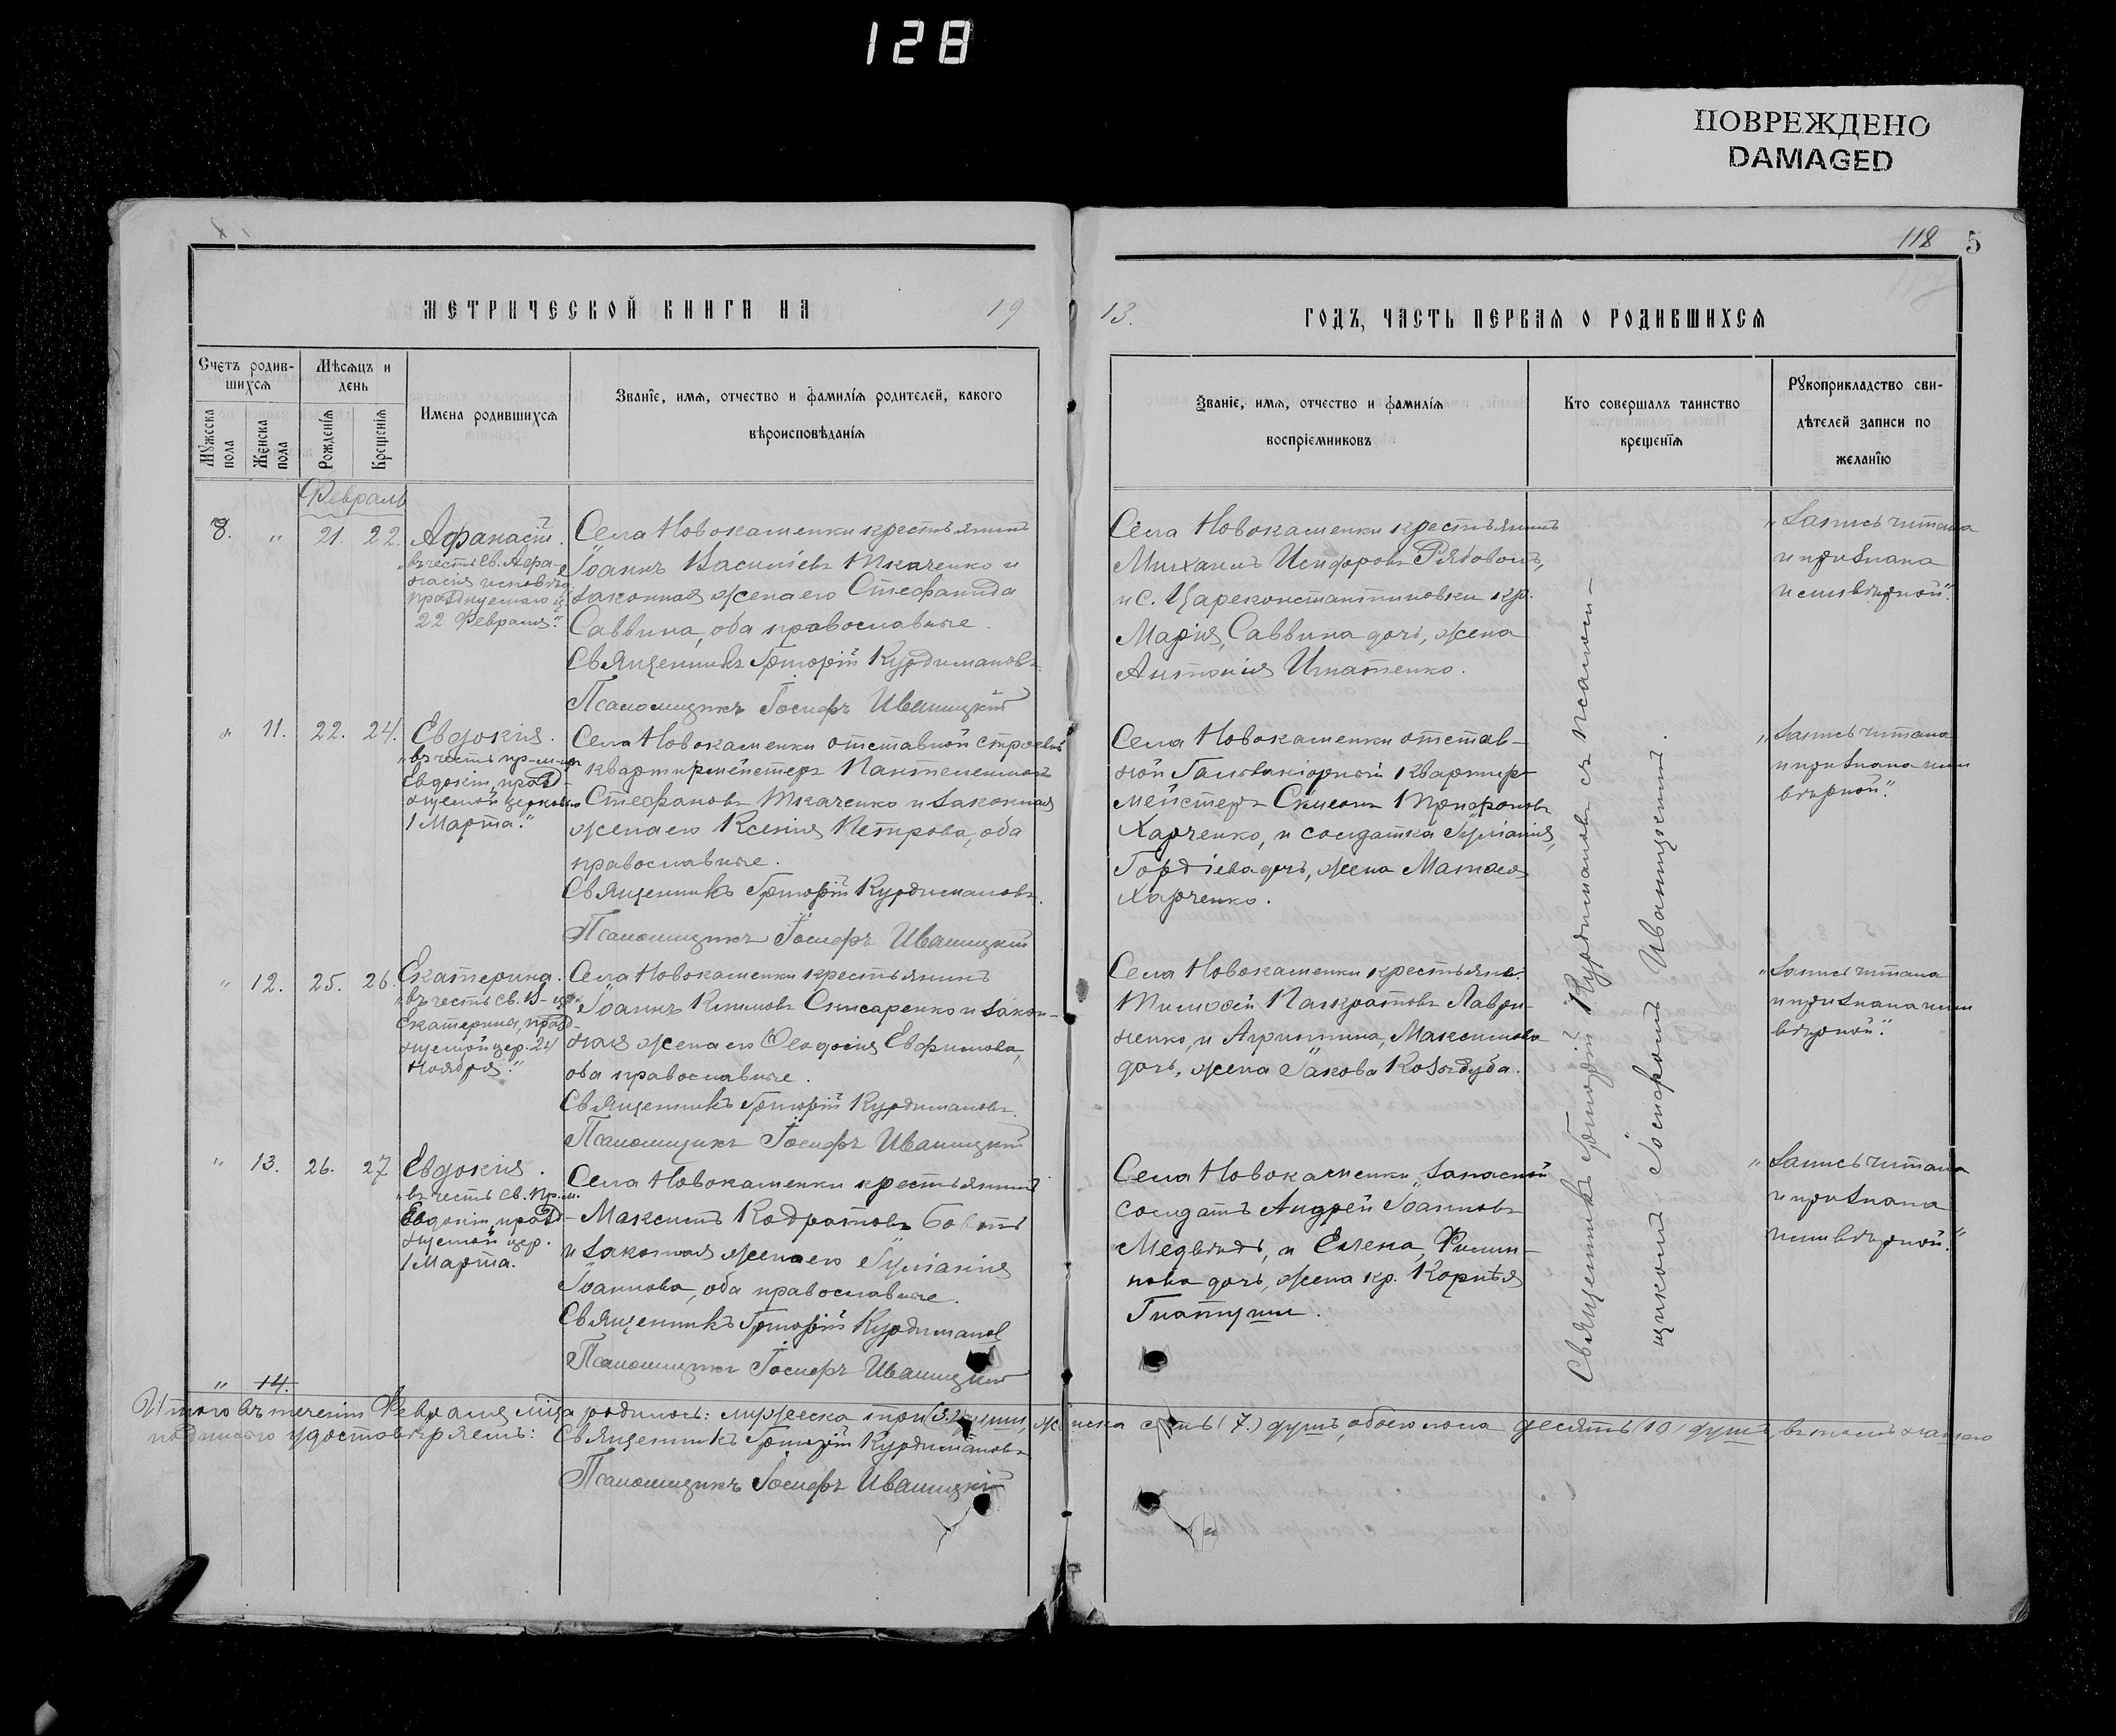 128
ПОВРЕЖДЕНО
DAMAGED
118 5
МЕТРИЧЕСКОЙ КНИГИ НА 19
13. ГОДЪ, ЧАСТЬ ПЕРВАЯ О РОДИВШИХСЯ
Счетъ родив-
шихся
Мужеска пола
Женска пола
Мѣсяцъ и
день
Рожденія
Крещенія
Имена родившихся
Званіе, имя, отчество и фамилія родителей, какого
вѣроисповѣданія
Званіе, имя, отчество и фамилія
воспріемниковъ
Кто совершалъ таинство
крещенія
Рукоприкладство сви-
дѣтелей записи по
желанію
Февраль
8. " 21. 22.
Афанасій.
въ честь св. Афа-
насія исповѣд.
празднуемаго ц.
22 Февраля."
Села Новокаменки крестьянинъ
Іоаннъ Васильевъ Ткаченко и
законная жена его Стефанида
Саввина, оба православные.
Священникъ Григорій Курдимановъ.
Псаломщикъ Іосифъ Иваницкій
Села Новокаменки крестьянинъ
Михаилъ Исидоровъ Рябоволъ,
и с. Цареконстантиновки кр.
Марія, Саввина дочь, жена
Антонія Игнатенко.
"Запись читана
и признана
нами вѣрной."
" 11. 22. 24.
Евдокія.
"въ честь пр-м-цы
Евдокіи, празд-
нуемой церковью
1 Марта."
Села Новокаменки отставной строевый
квартирмейстеръ Пантелеимонъ
Стефановъ Ткаченко и законная
жена его Ксенія Петрова, оба
православные.
Священникъ Григорій Курдимановъ.
Псаломщикъ Іосифъ Иваницкій
Села Новокаменки отстав-
ной Гальванерный Квартир-
мейстеръ Симеонъ Трифоновъ
Харченко, и солдатка Іуліанія,
Гордіева дочь, жена Матѳея
Харченко.
"Запись читана
и признана нами
вѣрной."
" 12. 25. 26.
Екатерина.
"въ честь св. В-м-цы
Екатерины, празд-
нуемой цер. 24
Ноября."
Села Новокаменки крестьянинъ
Іоаннъ Климовъ Слисаренко и закон-
ная жена его Ѳеодосія Евфимова,
оба православные.
Священникъ Григорій Курдимановъ.
Псаломщикъ Іосифъ Иваницкій
Села Новокаменки крестьяне:
Тимоѳей Панкратовъ Лаври-
ненко, и Агриппина, Максимова
дочь, жена Іакова Козодуба.
"Запись читана
и признана нами
вѣрной."
" 13. 26. 27
Евдокія.
"въ честь св. Пр.м.
Евдокіи, празд-
нуемой цер.
1 Марта.
Села Новокаменки крестьянинъ
Максимъ Кодратовъ
и законная жена его Іуліанія
Іоаннова, оба православные.
Священникъ Григорій Курдимановъ
Псаломщикъ Іосифъ Иваницкій
Села Новокаменки, запасной
солдатъ Андрей Іоанновъ
Медвѣдь, и Елена, Филип-
пова дочь, жена кр. Корнѣя
"Запись читана
и признана
нами вѣрной."
Священникъ Григорій Курдимановъ съ псалом-
щикомъ Іосифомъ Иваницкимъ.
" 14.
Итого въ теченіи Февраля м-ца родилось: мужеска три (3) души, женска семь (7) душъ, обоего пола десять (10) душъ, въ томъ нашею
подписью удостовѣряемъ: Священникъ Григорій Курдимановъ
Псаломщикъ Іосифъ Иваницкій